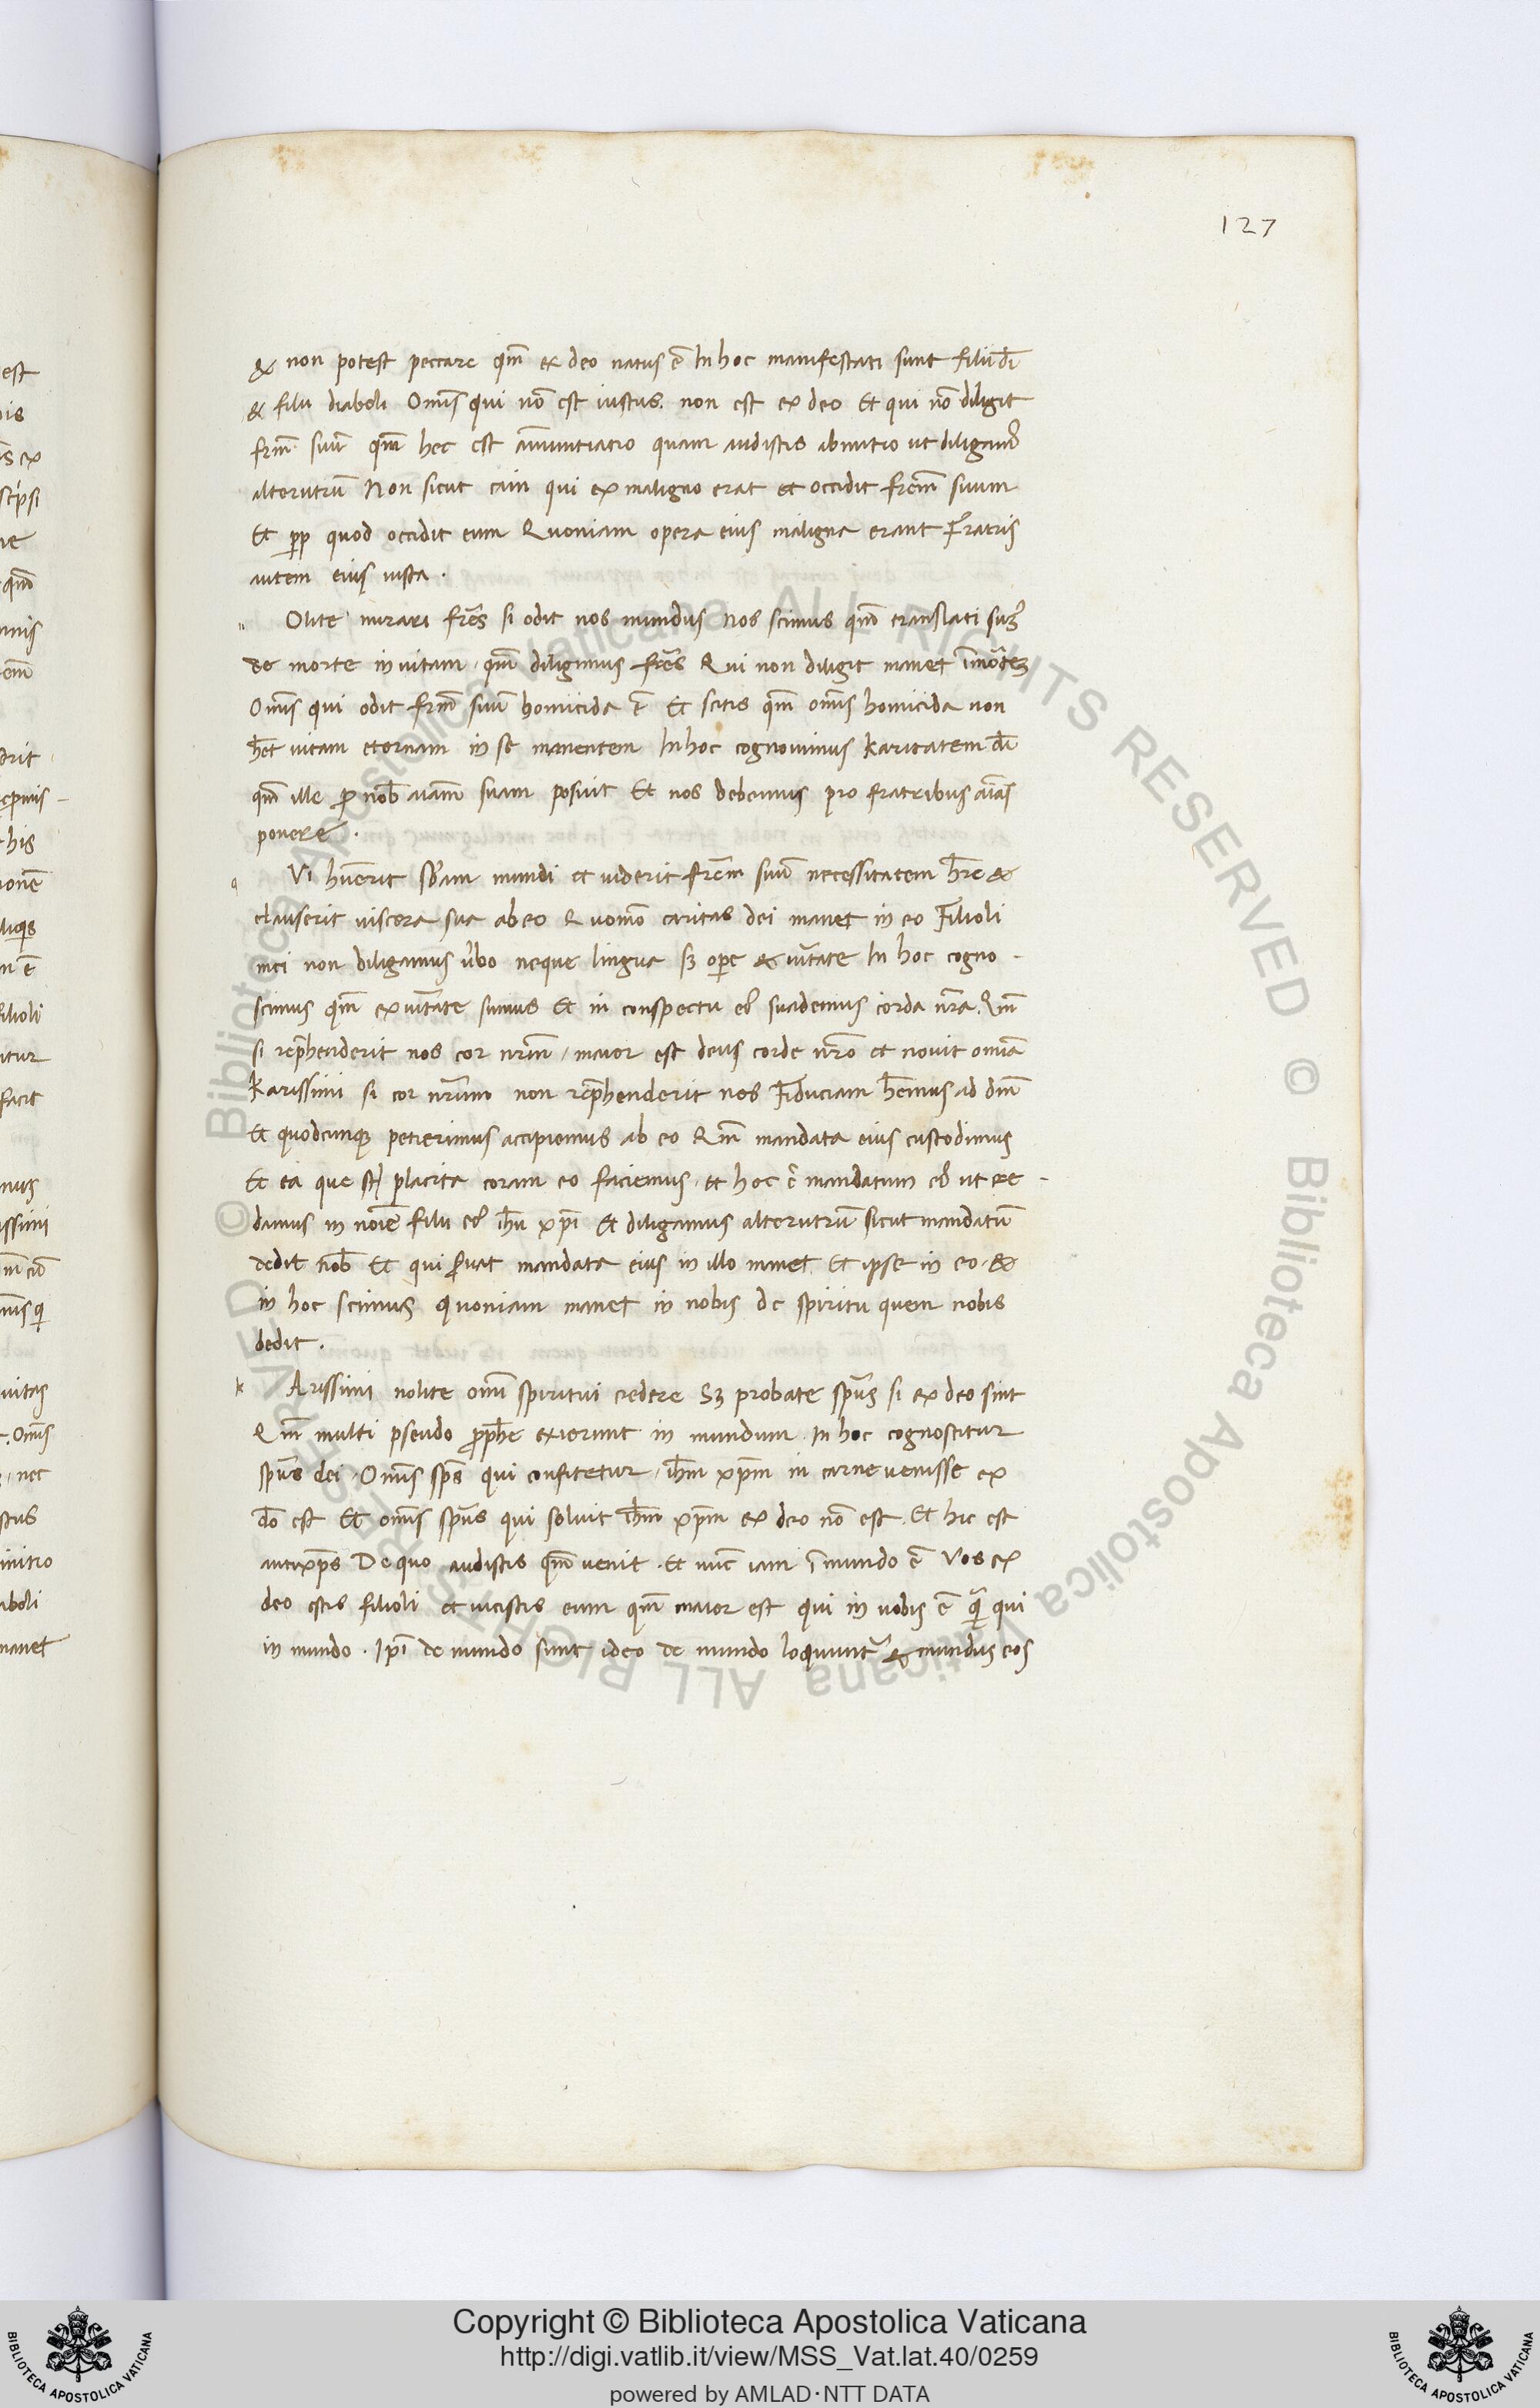 127
& non potest peccare qm̅ ex deo natus ē In hoc manifestati sunt filii dī
& filii diaboli Om̅s qui nō est iustus. non est ex deo Et qui nō diligit
frm̅ suū qm̅ hec est annuntiatio quam audistis ab initio ut diligam9
alterutrū Non sicut cain qui ex maligno erat et occidit frem̅ suum
Et ꝓp quod occidit eum Quoniam opera eius maligna erant Fratris
autem eius iusta.
n Olite mirari fre̅s si odit nos mundus Nos scimus qm̅ translati sum9
de morte in vitam. qm̅ diligimus fre̅s Qui non diligit manet ī morte
Om̅s qui odit frm̅ suū homicida ē Et scitis qm̅ om̅s homicida non
h̅et vitam eternam in se manentem In hoc cognovimus karitatem dī
qm̅ ille ꝓ nob̅ aiam̅ suam posuit Et nos debemus pro fratribus aīas
ponere.
q Vi hu̅erit sb̅am mundi et viderit frem̅ suū necessitatem h̅re &
clauserit viscera sua ab eo Quomō caritas dei manet in eo Filioli
mei non diligamus v̅bo neque lingua sꝫ ope & vi̅tate In hoc cogno-
scimus qm̅ ex vi̅tate sumus Et in conspectu ei9 suademus corda nr̅a. Qm̅
si rep̅henderit nos cor nr̅m, maior est deus corde nr̅o et novit omīa
karissimi si cor nr̅um non rep̅henderit nos Fiduciam h̅emus ad dm̅
Et quodcunqꝫ petierimus accipiemus ab eo Qm̅ mandata eius custodimus
Et ea que st̅ placita coram eo faciemus. et hoc ē mandatum ei9 ut cre-
damus in noīe filii ei9 ih̅u xp̅i Et diligamus alterutrū sicut mandatū
dedit nob̅ Et qui s̅vat mandata eius in illo manet Et ipse in eo. &
in hoc scimus quoniam manet in nobis de spiritu quem nobis
dedit.
k Arissimi nolite omī spiritui credere Sꝫ probate sp̅us si ex deo sint
Qm̅ multi pseudo ꝓph̅e exierunt in mundum. In hoc cognoscitur
sp̅us dei. Om̅s sp̅s qui confitetur, ih̅m xp̅m in carne venisse ex
dō est Et om̅s sp̅us qui solvit ih̅m xp̅m ex deo nō est. Et hic est
antixp̅s De quo audistis qm̅ venit. Et nūc iam ī mundo ē Vos ex
deo estis filioli et vicistis eum qm̅ maior est qui in vobis ē qͣ qui
in mundo. Ip̅i de mundo sunt ideo de mundo loquunt̅ & mundus eos
Copyright © Biblioteca Apostolica Vaticana
http://digi.vatlib.it/view/MSS_Vat.lat.40/0259
powered by AMLAD·NTT DATA